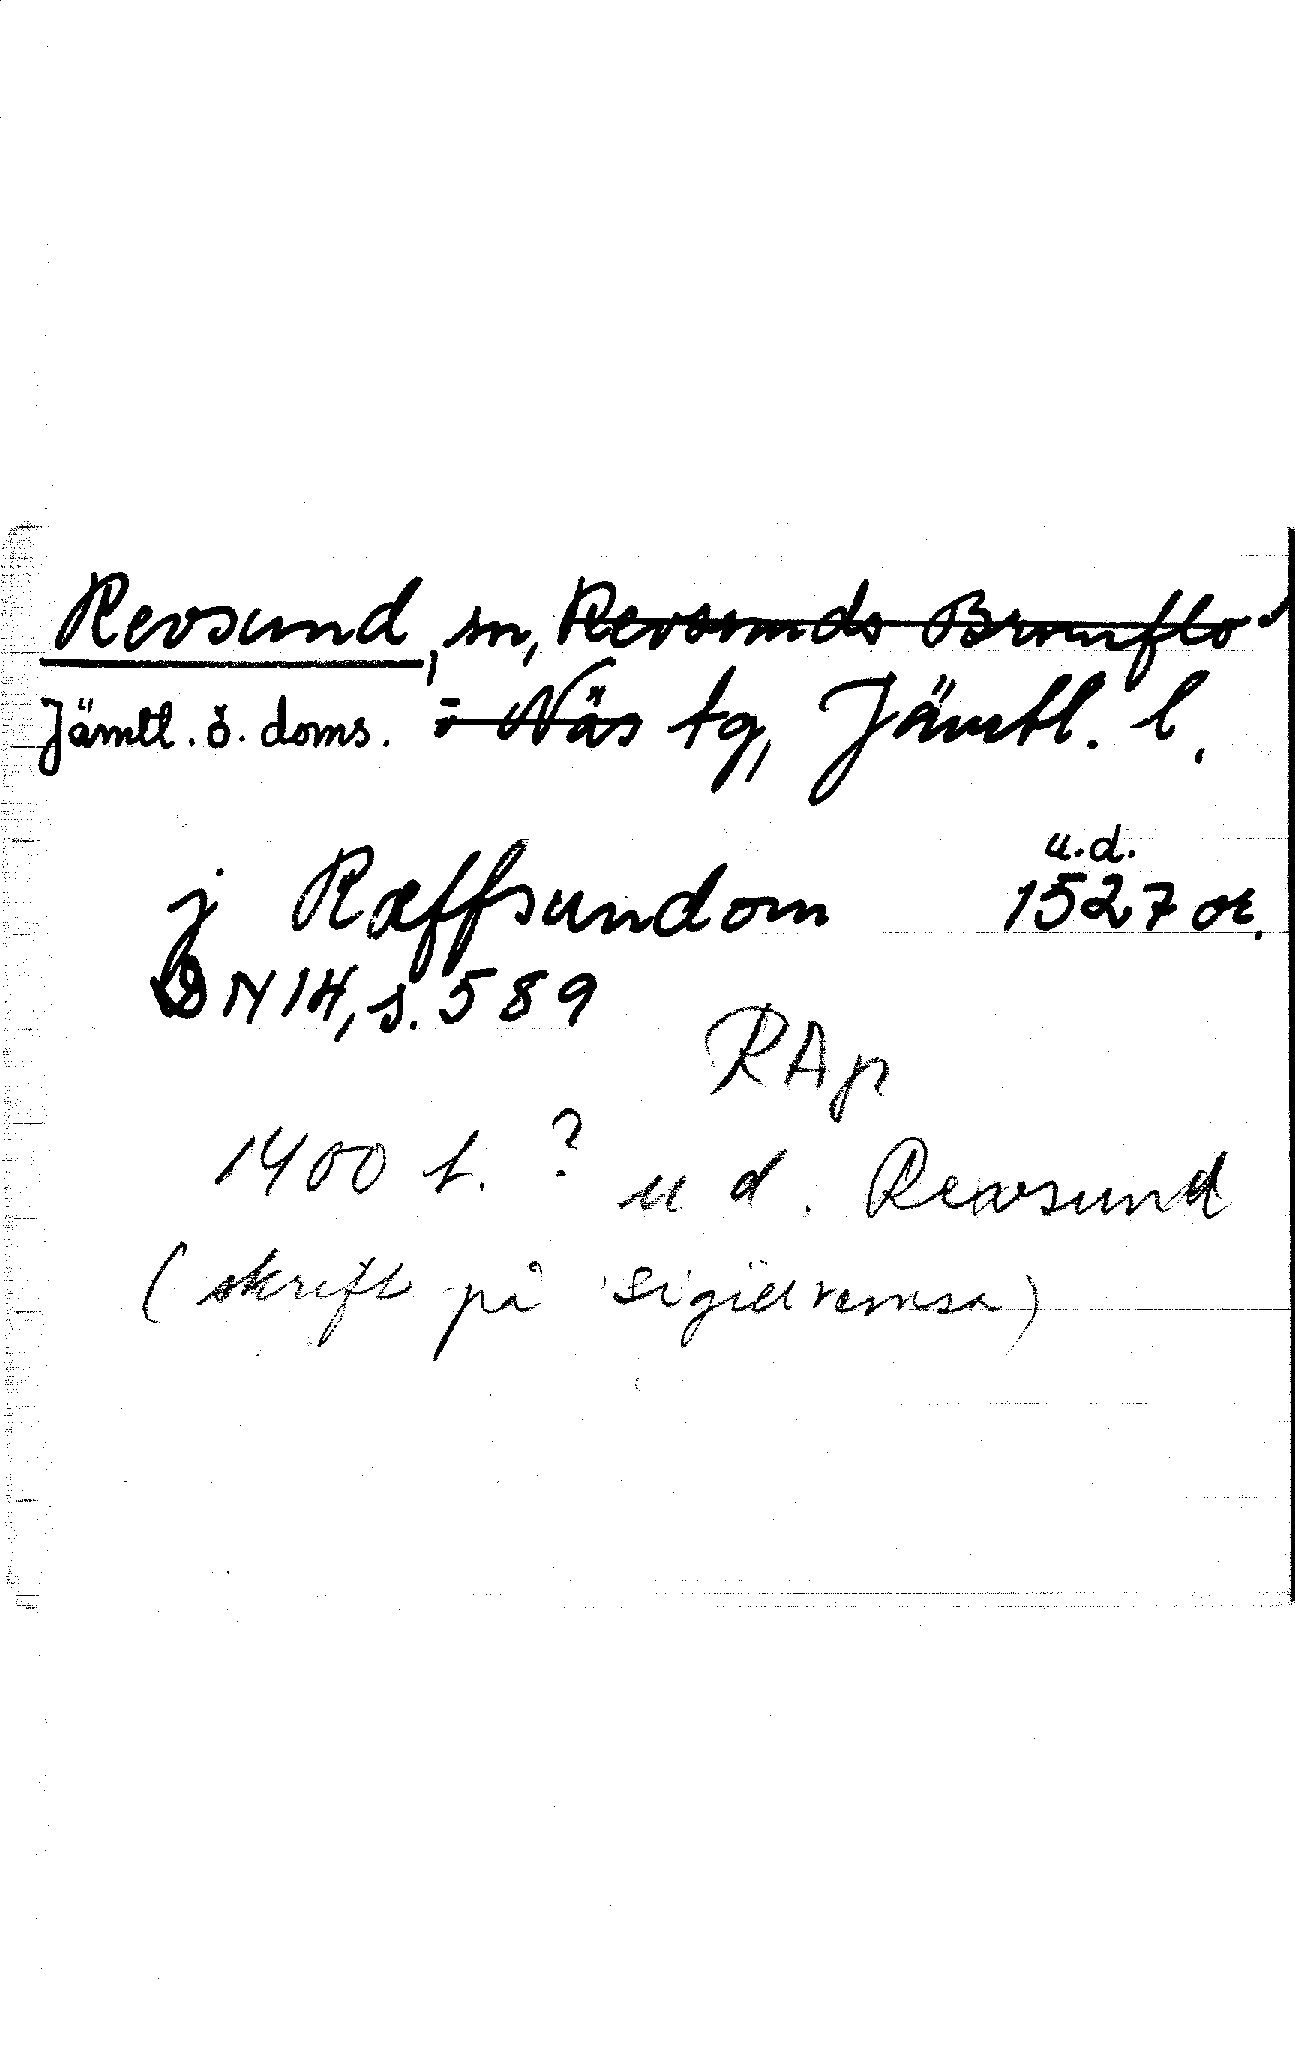 Revsund, sn, Revsunds Brunflo
Jämtl. ö. doms. o Näs tg, Jämtl. l.
u.d.
j Ræffsundom 1527 or.
DN 14, s. 589
RAp
1400 t. ? u d. Revsund
(skrift på sigillremsa)